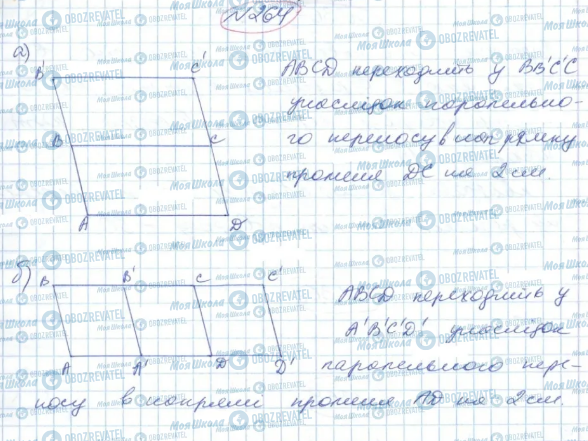 №264
а)
B' C'
ABCD переходить у BB'C'C
B C
унаслідок паралельно-
го переносу в напрямку
променя DC на 2 см.
A D
б)
B B' C C'
ABCD переходить у
A'B'C'D' унаслідок
A A' D D'
паралельного пере-
носу в напрямі променя AD на 2 см.
МояШкола OBOZREVATEL